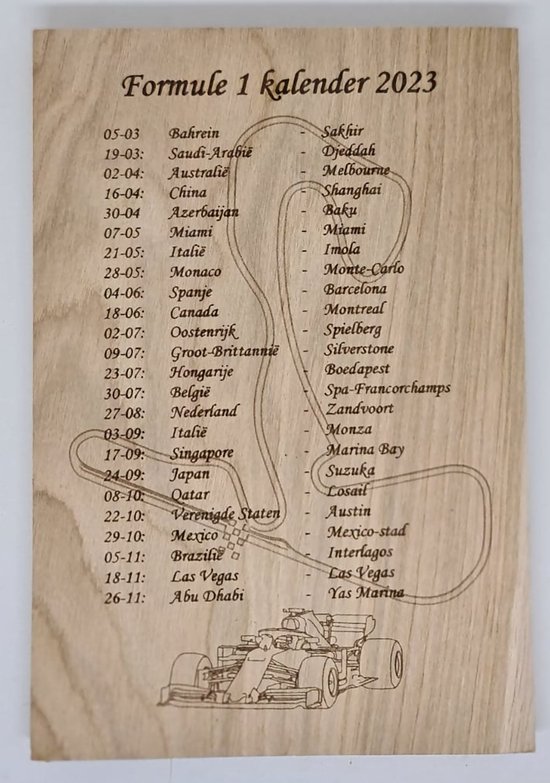 Formule 1 kalender 2023
05-03 Bahrein - Sakhir
19-03: Saudi-Arabië - Djeddah
02-04: Australië - Melbourne
16-04: China - Shanghai
30-04 Azerbaijan - Baku
07-05 Miami - Miami
21-05: Italië - Imola
28-05: Monaco - Monte-Carlo
04-06: Spanje - Barcelona
18-06: Canada - Montreal
02-07: Oostenrijk - Spielberg
09-07: Groot-Brittannië - Silverstone
23-07: Hongarije - Boedapest
30-07: België - Spa-Francorchamps
27-08: Nederland - Zandvoort
03-09: Italië - Monza
17-09: Singapore - Marina Bay
24-09: Japan - Suzuka
08-10: Qatar - Losail
22-10: Verenigde Staten - Austin
29-10: Mexico - Mexico-stad
05-11: Brazilië - Interlagos
18-11: Las Vegas - Las Vegas
26-11: Abu Dhabi - Yas Marina